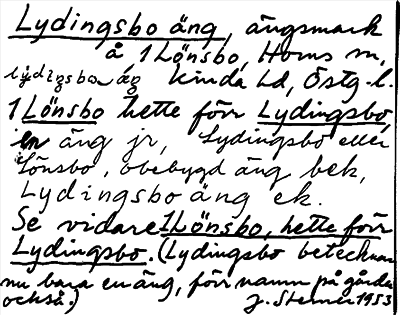 Lydingsbo äng, ängsmark
å 1 Lönsbo, Horns sn,
lydigsbo äg Kinda hd, Östg. l.
1 Lönsbo hette förr Lydingsbo,
en äng jr, Lydingsbo eller
Lönsbo, obebygd äng bek,
Lydingsbo äng ek.
Se vidare 1 Lönsbo, hette förr
Lydingsbo. (Lydingsbo betecknar
nu bara en äng, förr namn på gården
också.) J. Sterner 1953